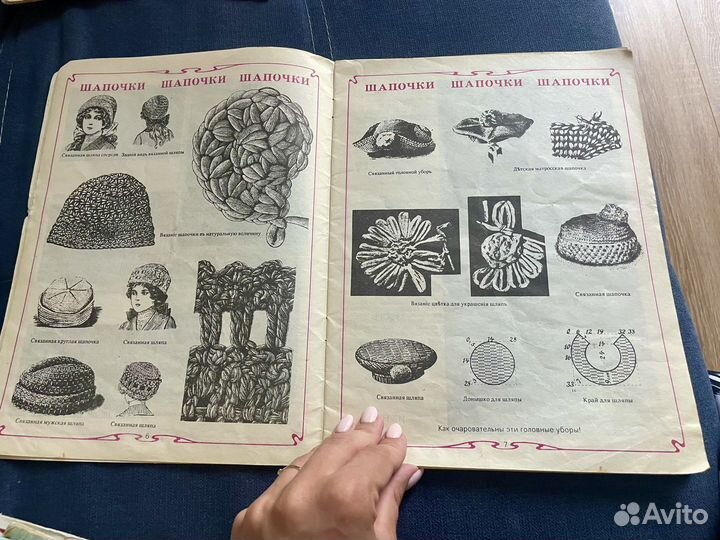 ШАПОЧКИ ШАПОЧКИ ШАПОЧКИ
Связанная шляпа спереди
Задний видъ вязанной шляпы
Вязаніе шапочки въ натуральную величину
Связанная круглая шапочка
Связанная шляпа
Связанная мужская шляпа
Связанная шляпа
6
ШАПОЧКИ ШАПОЧКИ ШАПОЧКИ
Связанный головной уборъ
Дѣтская матросская шапочка
Вязаніе цвѣтка для украшенія шляпъ
Связанная шапочка
0 14 28
14
28
0 6 12 19 32 33
14
24
33
Связанная шляпа
Донышко для шляпы
Край для шляпы
Как очаровательны эти головные уборы!
7
Avito